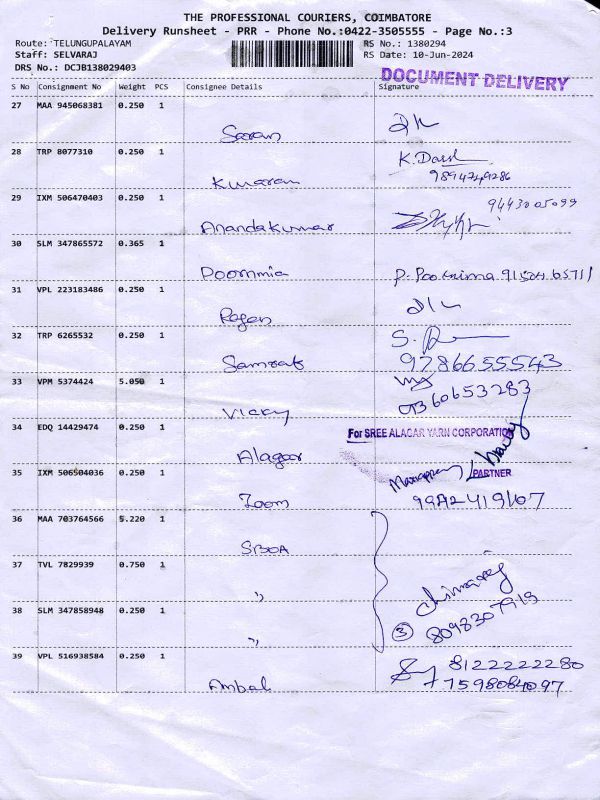 THE PROFESSIONAL COURIERS, COIMBATORE
Delivery Runsheet - PRR - Phone No.:0422-3505555 - Page No.:3
Route: TELUNGUPALAYAM RS No.: 1380294
Staff: SELVARAJ RS Date: 10-Jun-2024
DRS No.: DCJB138029403
DOCUMENT DELIVERY
S No Consignment No Weight PCS Consignee Details Signature
27 MAA 945068381 0.250 1
Saran
28 TRP 8077310 0.250 1
Kumaran
K. 9894749286
29 IXM 506470403 0.250 1
Anandakumar
9443005099
30 SLM 347865572 0.365 1
Poornmia P. Poornima
31 VPL 223183486 0.250 1
Rajan
32 TRP 6265532 0.250 1
Samrat
9786655543
33 VPM 5374424 5.050 1
Vicky
9360653283
34 EDQ 14429474 0.250 1
For SREE ALAGAR YARN CORPORATION
Alagar
PARTNER
35 IXM 506504036 0.250 1
Zoom
36 MAA 703764566 5.220 1
SBOA
37 TVL 7829939 0.750 1
"
38 SLM 347858948 0.250 1
" 3 8098307919
39 VPL 516938584 0.250 1
8122222280
Ambal 7598084097